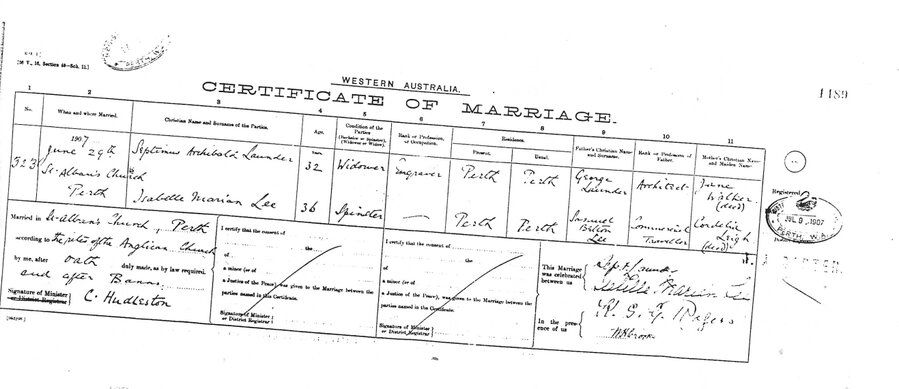 [56 V., 16, Section 48—Sch. 11.]
WESTERN AUSTRALIA.
CERTIFICATE OF MARRIAGE.
1489
1 2 3 4 5 6 7 8 9 10 11
No. When and where Married. Christian Name and Surname of the Parties. Age. Condition of the Parties (Bachelor or Spinster), (Widower or Widow). Rank or Profession, or Occupation. Residence. Present. Usual. Father's Christian Name and Surname. Rank or Profession of Father. Mother's Christian Name and Maiden Name
Years
323
1907
June 29th
St Albans Church
Perth
Septimus Archibald Launder 32 Widower Engraver Perth Perth George Launder Architect Jane Walker (dec'd)
Isabelle Marian Lee 36 Spinster — Perth Perth Samuel Belton Lee Commercial Traveller Cordelia Leigh (dec'd)
Registered
JUL 9 1907
PERTH, W.A.
Married in St Albans Church, Perth
according to the rites of the Anglican Church
by me, after oath duly made, as by law required.
and after Banns
Signature of Minister
or District Registrar
C. Hudleston
I certify that the consent of
the
a minor (or of
a Justice of the Peace), was given to the Marriage between the
parties named in the Certificate.
Signature of Minister
or District Registrar
I certify that the consent of
the
a minor (or of
a Justice of the Peace), was given to the Marriage between the
parties named in the Certificate.
Signature of Minister
or District Registrar
This Marriage
was celebrated
between us
Isabelle Marian Lee
In the pre-
ence of us